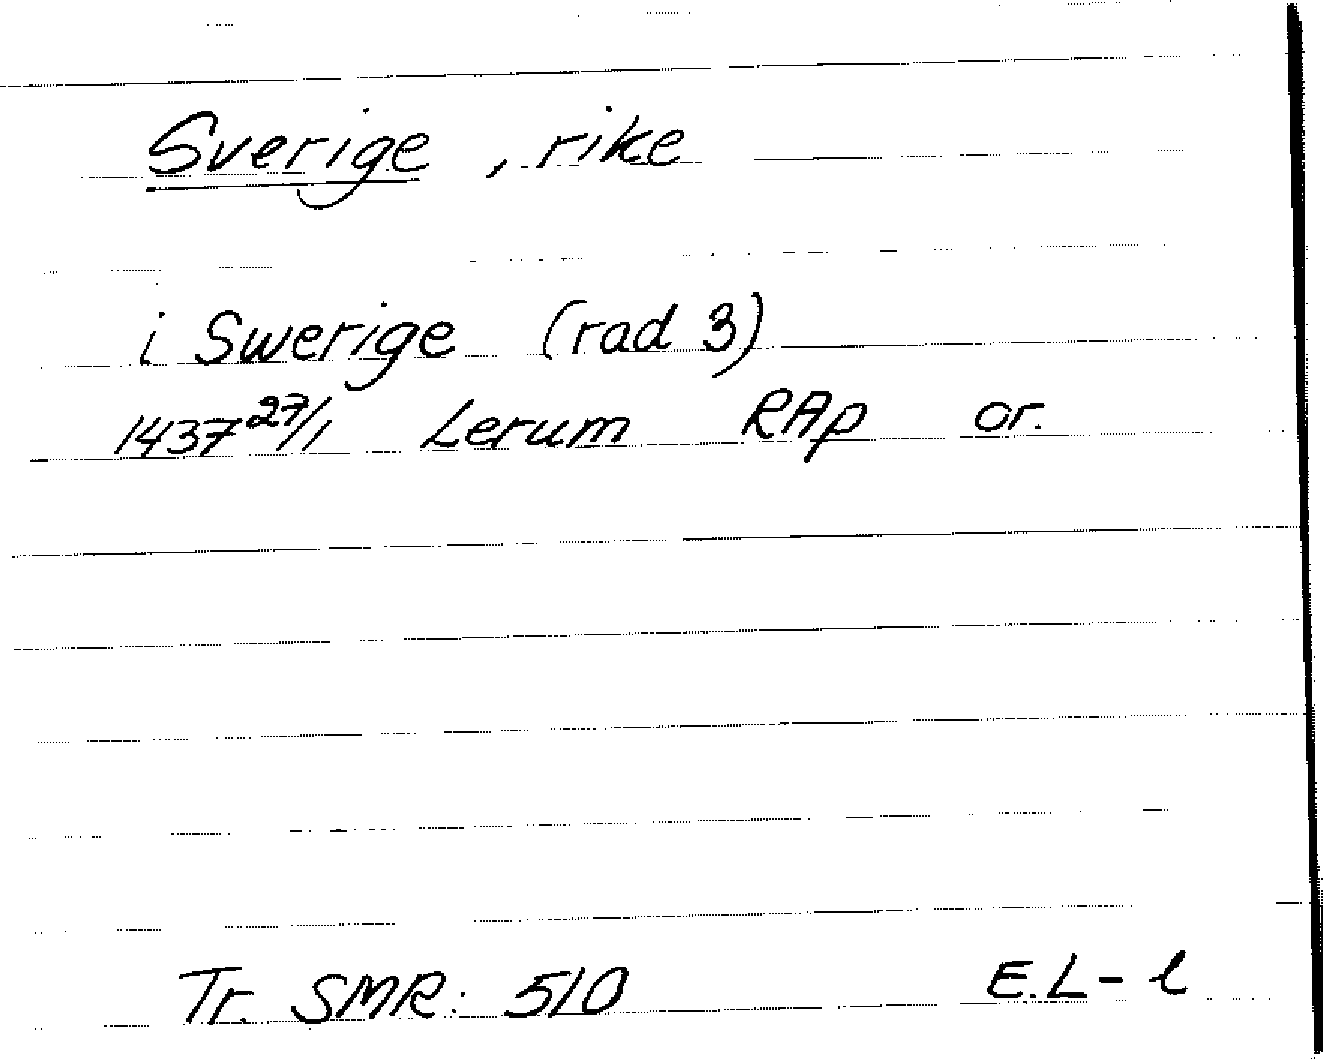 Sverige, rike
i Swerige (rad 3)
1437 27/1 Lerum RAp or.
Tr. SMR: 510 E.L-l